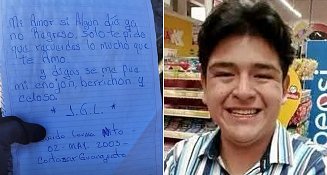 Mi Amor si Algún día ya
no Regreso, solo te pido
que recuerdes lo mucho que
te Amo
y digas se me fue
mi enojón, berrichon y
celoso.
* J.G.L. *
02-MAY. 2003-
Cortazar Guanajuato
pepsi